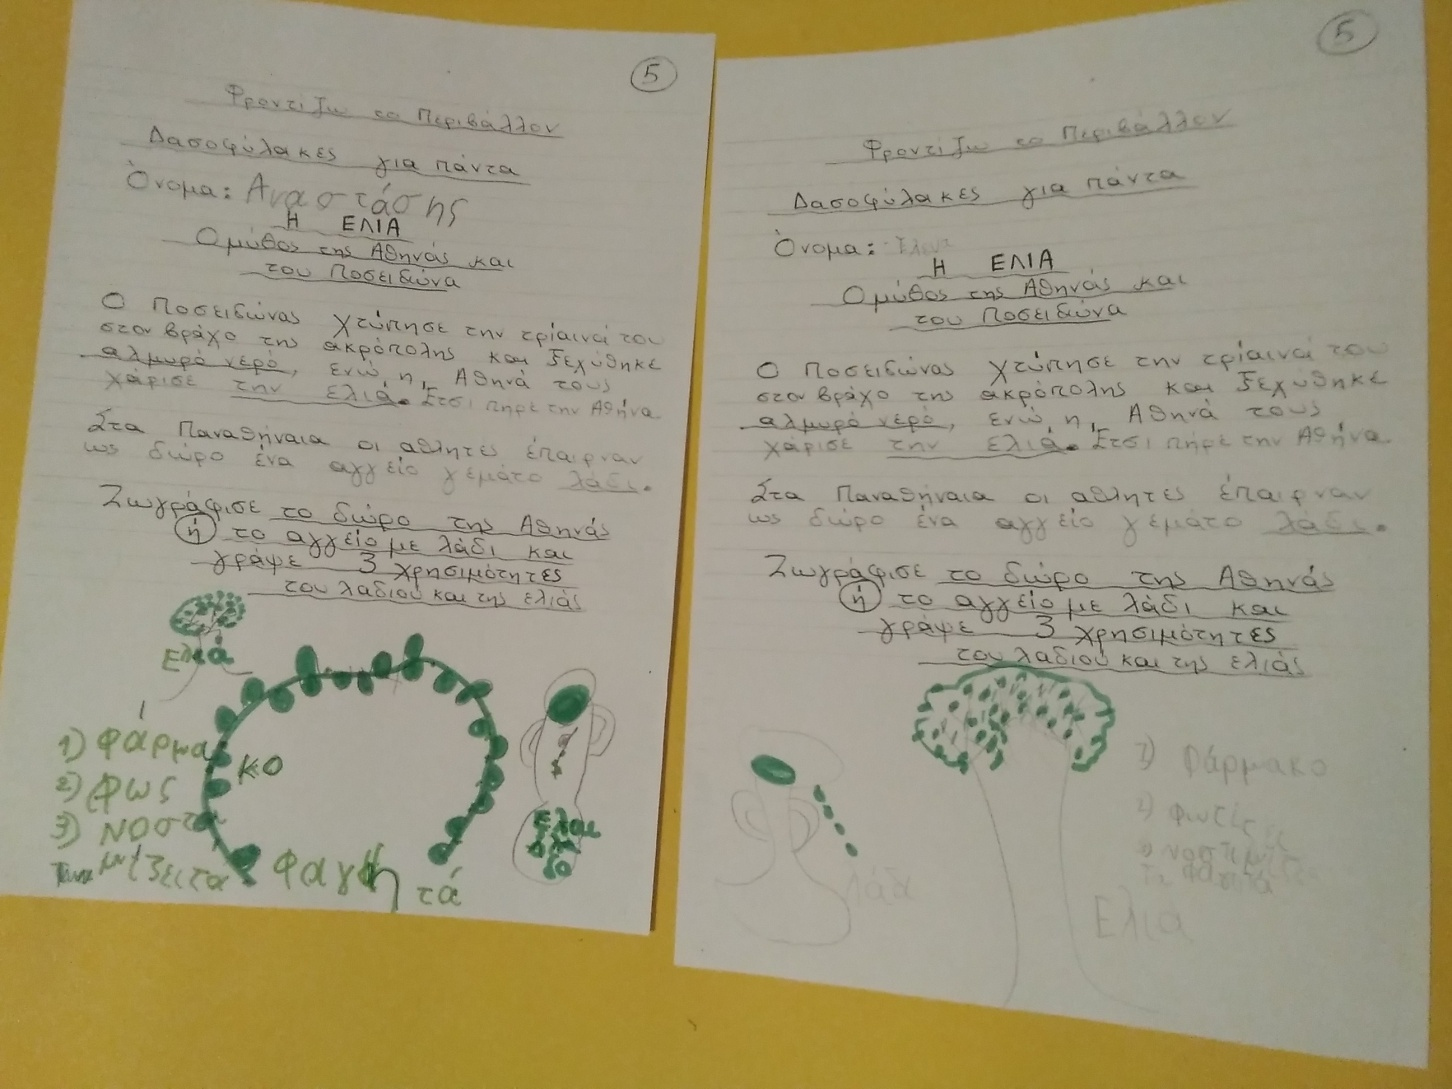 5
Φροντίζω το Περιβάλλον
Δασοφύλακες για πάντα
Όνομα: Αναστάσης
Η ΕΛΙΑ
Ο μύθος της Αθηνάς και
του Ποσειδώνα
Ο Ποσειδώνας χτύπησε την τρίαινά του
στον βράχο της ακρόπολης και ξεχύθηκε
αλμυρό νερό, ενώ η Αθηνά τους
χάρισε την ελιά. Έτσι πήρε την Αθήνα
Στα Παναθήναια οι αθλητές έπαιρναν
ως δώρο ένα αγγείο γεμάτο λάδι.
Ζωγράφισε το δώρο της Αθηνάς
ή το αγγείο με λάδι και
γράψε 3 χρησιμότητες
του λαδιού και της ελιάς
Ελιά
1) φάρμακο
2) φως
3) νοστιμίζει τα φαγητά
5
Φροντίζω το Περιβάλλον
Δασοφύλακες για πάντα
Όνομα:
Η ΕΛΙΑ
Ο μύθος της Αθηνάς και
του Ποσειδώνα
Ο Ποσειδώνας χτύπησε την τρίαινά του
στον βράχο της ακρόπολης και ξεχύθηκε
αλμυρό νερό, ενώ η Αθηνά τους
χάρισε την ελιά. Έτσι πήρε την Αθήνα
Στα Παναθήναια οι αθλητές έπαιρναν
ως δώρο ένα αγγείο γεμάτο λάδι.
Ζωγράφισε το δώρο της Αθηνάς
ή το αγγείο με λάδι και
γράψε 3 χρησιμότητες
του λαδιού και της ελιάς
1) φάρμακο
2)
Λάδι
Ελια